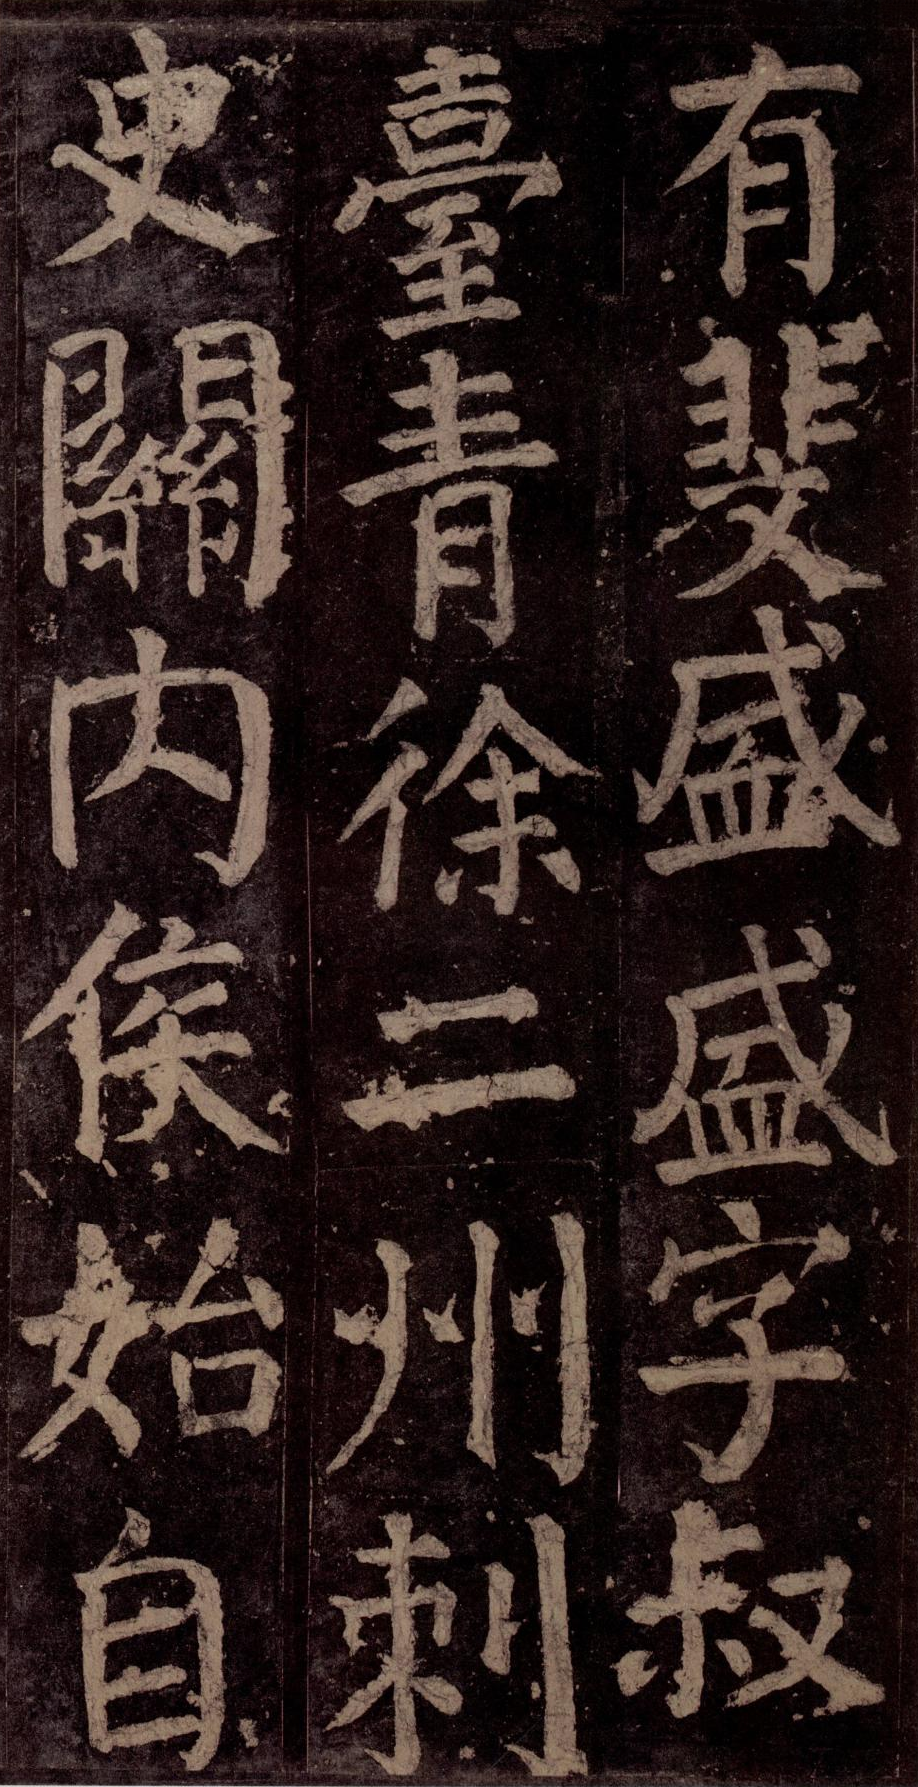 有斐盛盛字叔
臺青徐二州刺
史關內侯始自